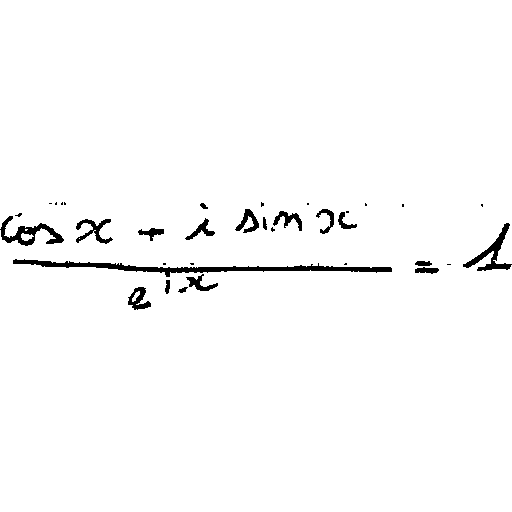 cos x + i sin x
= 1
e^{ix}